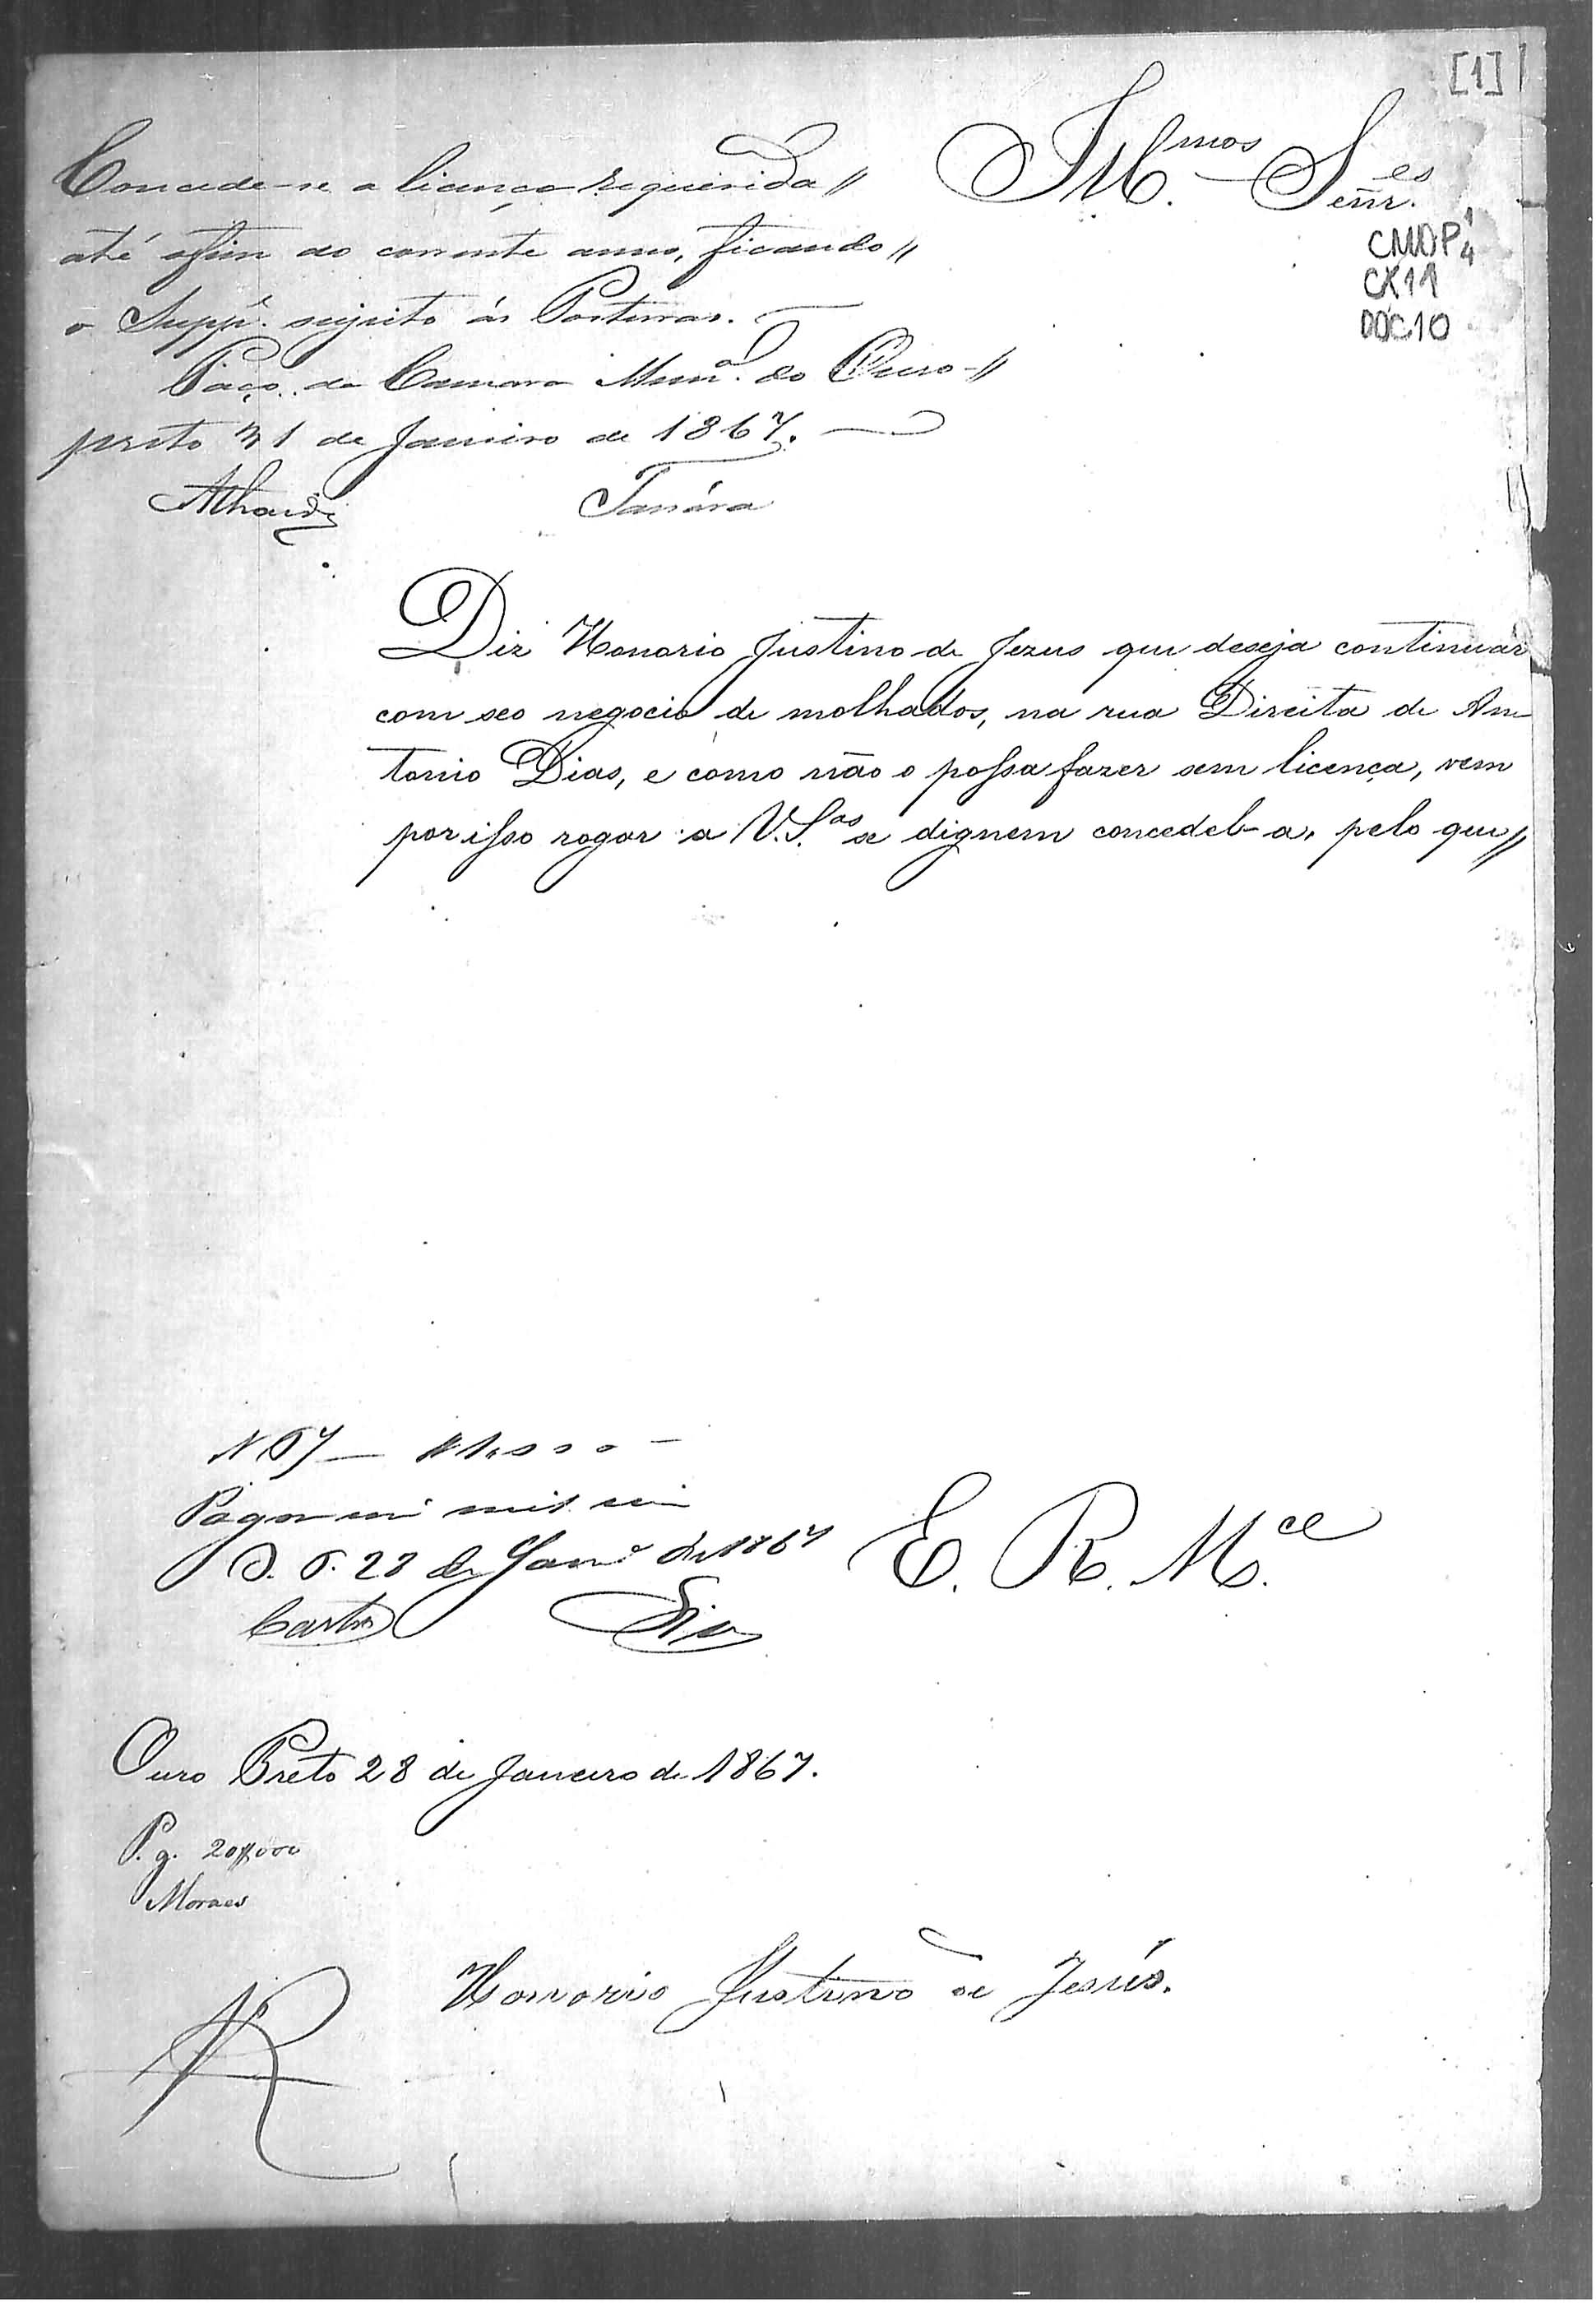 [1]
Illmos Señres
CMOP 1
4
CX 11
DOC 10
Concede-se a licença requerida //
até o fim do corrente anno, ficando //
o Suppe. sujeito ás Posturas.
Paço da Camara Munal. do Ouro-//
preto 31 de Janeiro de 1867.
Diz Honorio Justino de Jezus que deseja continuar
com seo negocio de molhados, na rua Direita de An-
tonio Dias, e como não o possa fazer sem licença, vem
por isso rogar a V.Sas se dignem concedel-a, pelo que //
N 67 — 1000 —
Pagou mil
O. P. 28 de Janro de 1867
Castro
E. R. Mce
Ouro Preto 28 de Janeiro de 1867.
P. g. 20$000
Moraes
Honorio Justino de Jesús.